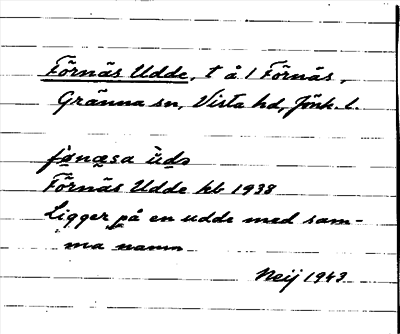 Förnäs Udde, t å 1 Förnäs,
Gränna sn, Vista hd, Jönk. l.
Förnäs Udde kb 1938
Ligger på en udde med sam-
ma namn
Neij 1943